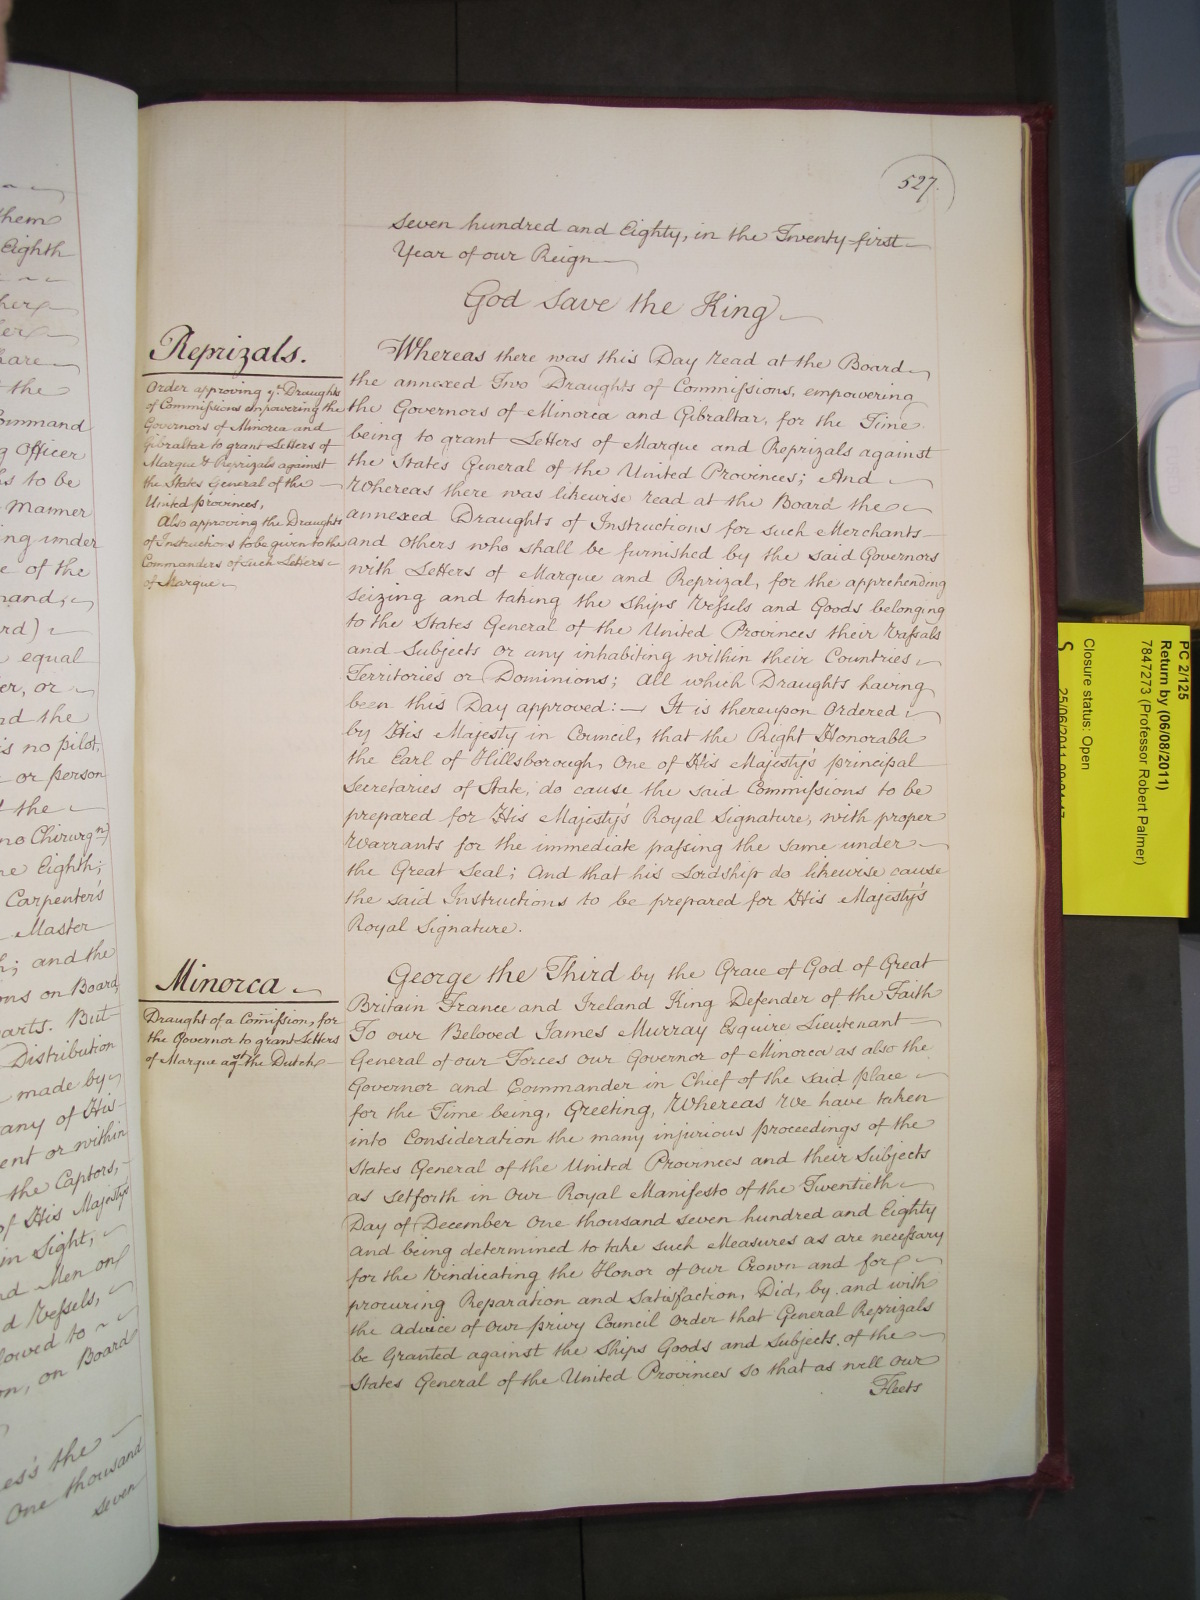 527.
seven hundred and Eighty, in the Twenty first
Year of our Reign
God Save the King
Reprizals.
Order approving ye. Draughts
of Commissions empowering the
Governors of Minorca and
Gibraltar to grant Letters of
Marque & Reprizals against
the States General of the
United provinces,
Also approving the Draughts
of Instructions to be given to the
Commanders of such Letters
of Marque
Whereas there was this Day read at the Board
the annexed Two Draughts of Commissions, empowering
the Governors of Minorca and Gibraltar, for the Time
being to grant Letters of Marque and Reprizals against
the States General of the United Provinces; And
Whereas there was likewise read at the Board the
annexed Draughts of Instructions for such Merchants
and others who shall be furnished by the said Governors
with Letters of Marque and Reprizal, for the apprehending
seizing and taking the ships Vessels and Goods belonging
to the States General of the United Provinces their Vassals
and Subjects or any inhabiting within their Countries
Territories or Dominions; All which Draughts having
been this Day approved: It is thereupon Ordered
by His Majesty in Council, that the Right Honorable
the Earl of Hillsborough, One of His Majesty's principal
Secretaries of State, do cause the said Commissions to be
prepared for His Majesty's Royal Signature, with proper
Warrants for the immediate passing the same under
the Great Seal; And that his Lordship do likewise cause
the said Instructions to be prepared for His Majesty's
Royal Signature.
Minorca
Draught of a Comission, for
the Governor to grant Letters
of Marque agst. the Dutch
George the Third by the Grace of God of Great
Britain France and Ireland King Defender of the Faith
To our Beloved James Murray Esquire Lieutenant
General of our Forces our Governor of Minorca as also the
Governor and Commander in Chief of the said place
for the Time being, Greeting, Whereas We have taken
into Consideration the many injurious proceedings of the
States General of the United Provinces and their Subjects
as setforth in Our Royal Manifesto of the Twentieth
Day of December One thousand seven hundred and Eighty
and being determined to take such Measures as are necessary
for the Vindicating the Honor of Our Crown and for
procuring Reparation and Satisfaction, Did, by and with
the Advice of Our privy Council Order that General Reprizals
be Granted against the Ships Goods and Subjects of the
States General of the United Provinces so that as well Our
Fleets
them
Eighth
the
ommand
g Officer
to be
Manner
ing under
e of the
rd)
equal
er, or
nd the
is no pilot,
or person
the
no Chirurgn
ne Eighth;
Carpenter's
Master
; and the
ons on Board,
arts. But
Distribution
made by
any of His
ent or within
the Captors,
of His Majesty's
in Sight,
nd Men on
d Vessels,
lowed to
on, on Board
ess's the
One thousand
seven
PC 2/125
Return by (06/08/2011)
7847273 (Professor Robert Palmer)
Closure status: Open
S